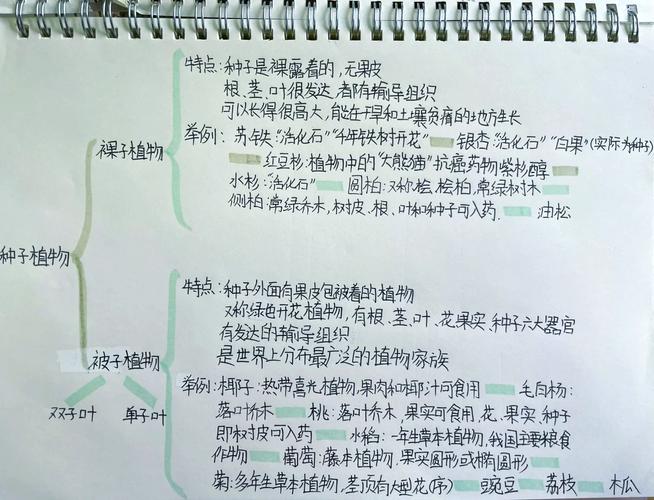 特点:种子是裸露着的,无果皮
根、茎、叶很发达,都有输导组织
可以长得很高大,能在干旱和土壤贫瘠的地方生长
裸子植物
举例:苏铁:“活化石”“千年铁树开花” 银杏:“活化石”“白果”(实际为种子)
红豆杉:植物中的“大熊猫”抗癌药物紫杉醇
水杉:“活化石” 圆柏:又称桧、桧柏,常绿树木
侧柏:常绿乔木,树皮、根、叶和种子可入药 油松
种子植物
特点:种子外面有果皮包被着的植物
又称绿色开花植物,有根、茎、叶、花、果实、种子六大器官
有发达的输导组织
是世界上分布最广泛的植物家族
被子植物
双子叶 单子叶
举例:椰子:热带喜光植物,果肉和椰汁可食用 毛白杨:
落叶乔木 桃:落叶乔木,果实可食用,花、果实、种子
即树皮可入药 水稻:一年生草本植物,我国主要粮食
作物 葡萄:藤本植物,果实圆形或椭圆形
菊:多年生草本植物,茎顶有大型花(序) 豌豆 荔枝 木瓜